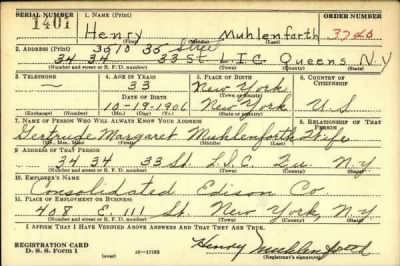 SERIAL NUMBER 1. NAME (Print) ORDER NUMBER
1401 Henry Muhlenforth 3740
(First) (Middle) (Last)
2. ADDRESS (Print) 3010 35 Stree
34 34 33 St L.I.C. Queens N.Y
(Number and street or R. F. D. number) (Town) (County) (State)
3. TELEPHONE 4. AGE IN YEARS 5. PLACE OF BIRTH 6. COUNTRY OF CITIZENSHIP
— 33 New York
DATE OF BIRTH (Town or county)
10-19-1906 New York U S
(Exchange) (Number) (Mo.) (Day) (Yr.) (State or country)
7. NAME OF PERSON WHO WILL ALWAYS KNOW YOUR ADDRESS 8. RELATIONSHIP OF THAT PERSON
Gertrude Margaret Muhlenforth Wife
(Mr., Mrs., Miss) (First) (Middle) (Last)
9. ADDRESS OF THAT PERSON
34 34 33 St. L.I.C. Qu. N.Y.
(Number and street or R. F. D. number) (Town) (County) (State)
10. EMPLOYER'S NAME
Consolidated Edison Co
11. PLACE OF EMPLOYMENT OR BUSINESS
408 E. 111 St. New York, N.Y
(Number and street or R. F. D. number) (Town) (County) (State)
I AFFIRM THAT I HAVE VERIFIED ABOVE ANSWERS AND THAT THEY ARE TRUE.
REGISTRATION CARD
D. S. S. Form 1 16—17105 Henry Muhlenforth
(Registrant's signature)